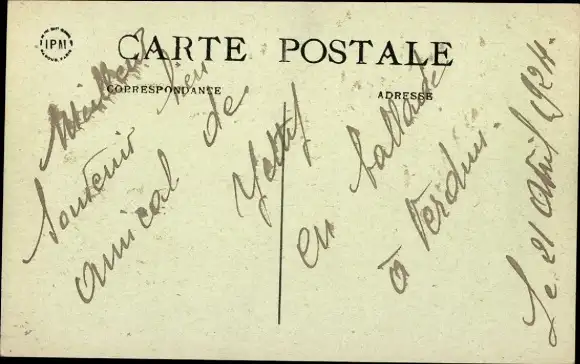 IPM
CARTE POSTALE
CORRESPONDANCE
ADRESSE
Souvenir bien
amical de
en ballade
à Verdun.
Le 21 Avril 1924.